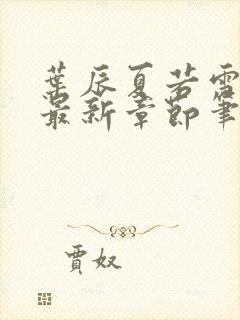 葉辰夏若雪
最新章節筆
賈奴